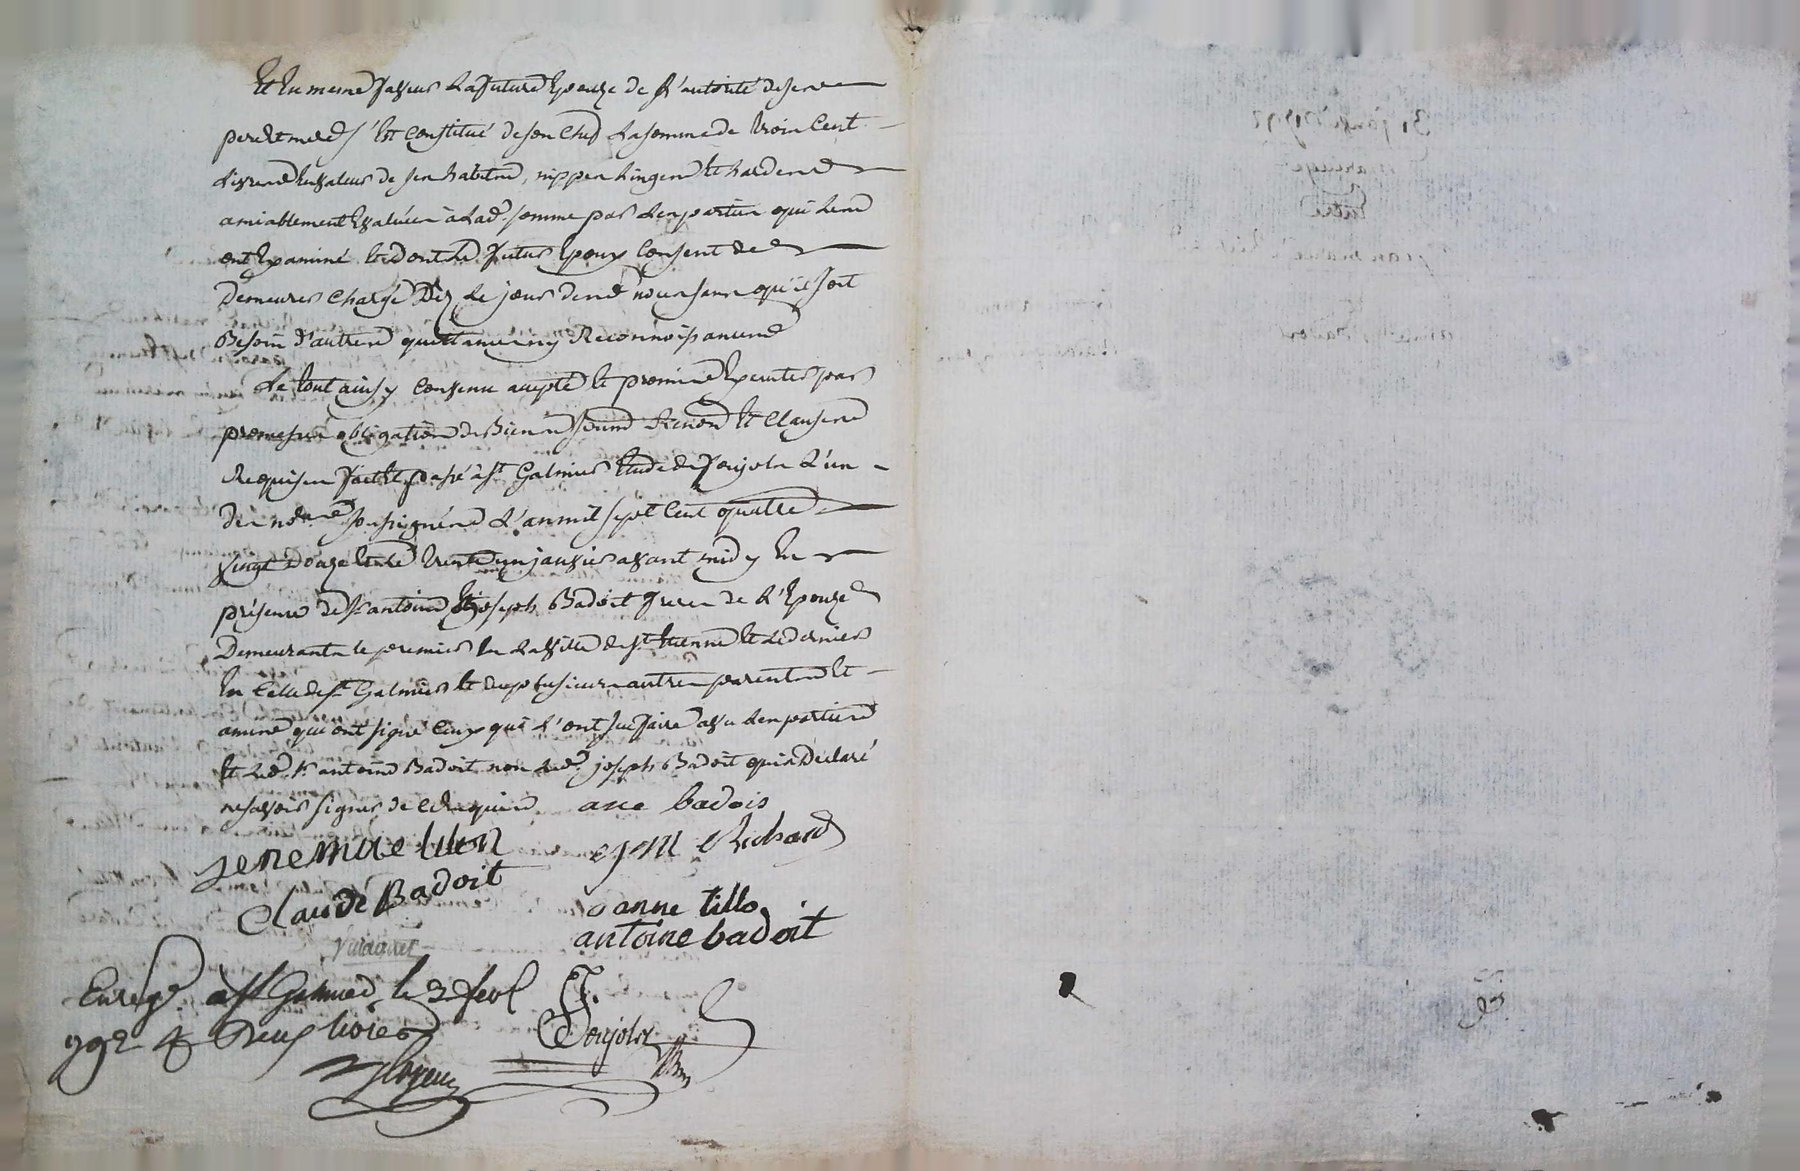 Et en meme faveur la future Epouze de l'autorité de ses
pere et mere s'est constitué de son chef la somme de trois cent
livres en valeur de ses habits, nippes linges et hardes
amiablement Evaluées à lad. somme par les parties qui les
ont Examiné et dont le futur Epoux consent de
demeurer chargé Dez le jour des noces sans qu'il soit
Besoin d'autres quittances ny Reconnoissances
Le tout ainsy convenu accepté et promis Executer par
promesses obligations de Biens soumis Renon. et clauses
Requises fait et passé à St. Galmier Etude de Poujola l'un
des nores. soussignés L'an mil sept cent quatre
vingt Douze et le trente un janvier avant midy En
présence de sr. antoine Et joseph Badoit freres de l'Epouze
Demeurants le premier En la ville de st. Etienne et le dernier
En celle de st. Galmier et de plusieurs autres parents et
amis qui ont signé ceux qui l'ont sçu faire avec les parties
et led. sr. antoine Badoit non led. joseph Badoit qui a Déclaré
ne savoir signer de ce Requis ane badois
Richard
Claude Badoit
anne tillo
antoine badoit
Enregé. à St Galmier le 3 fevr
792 Deux livres
Poujola